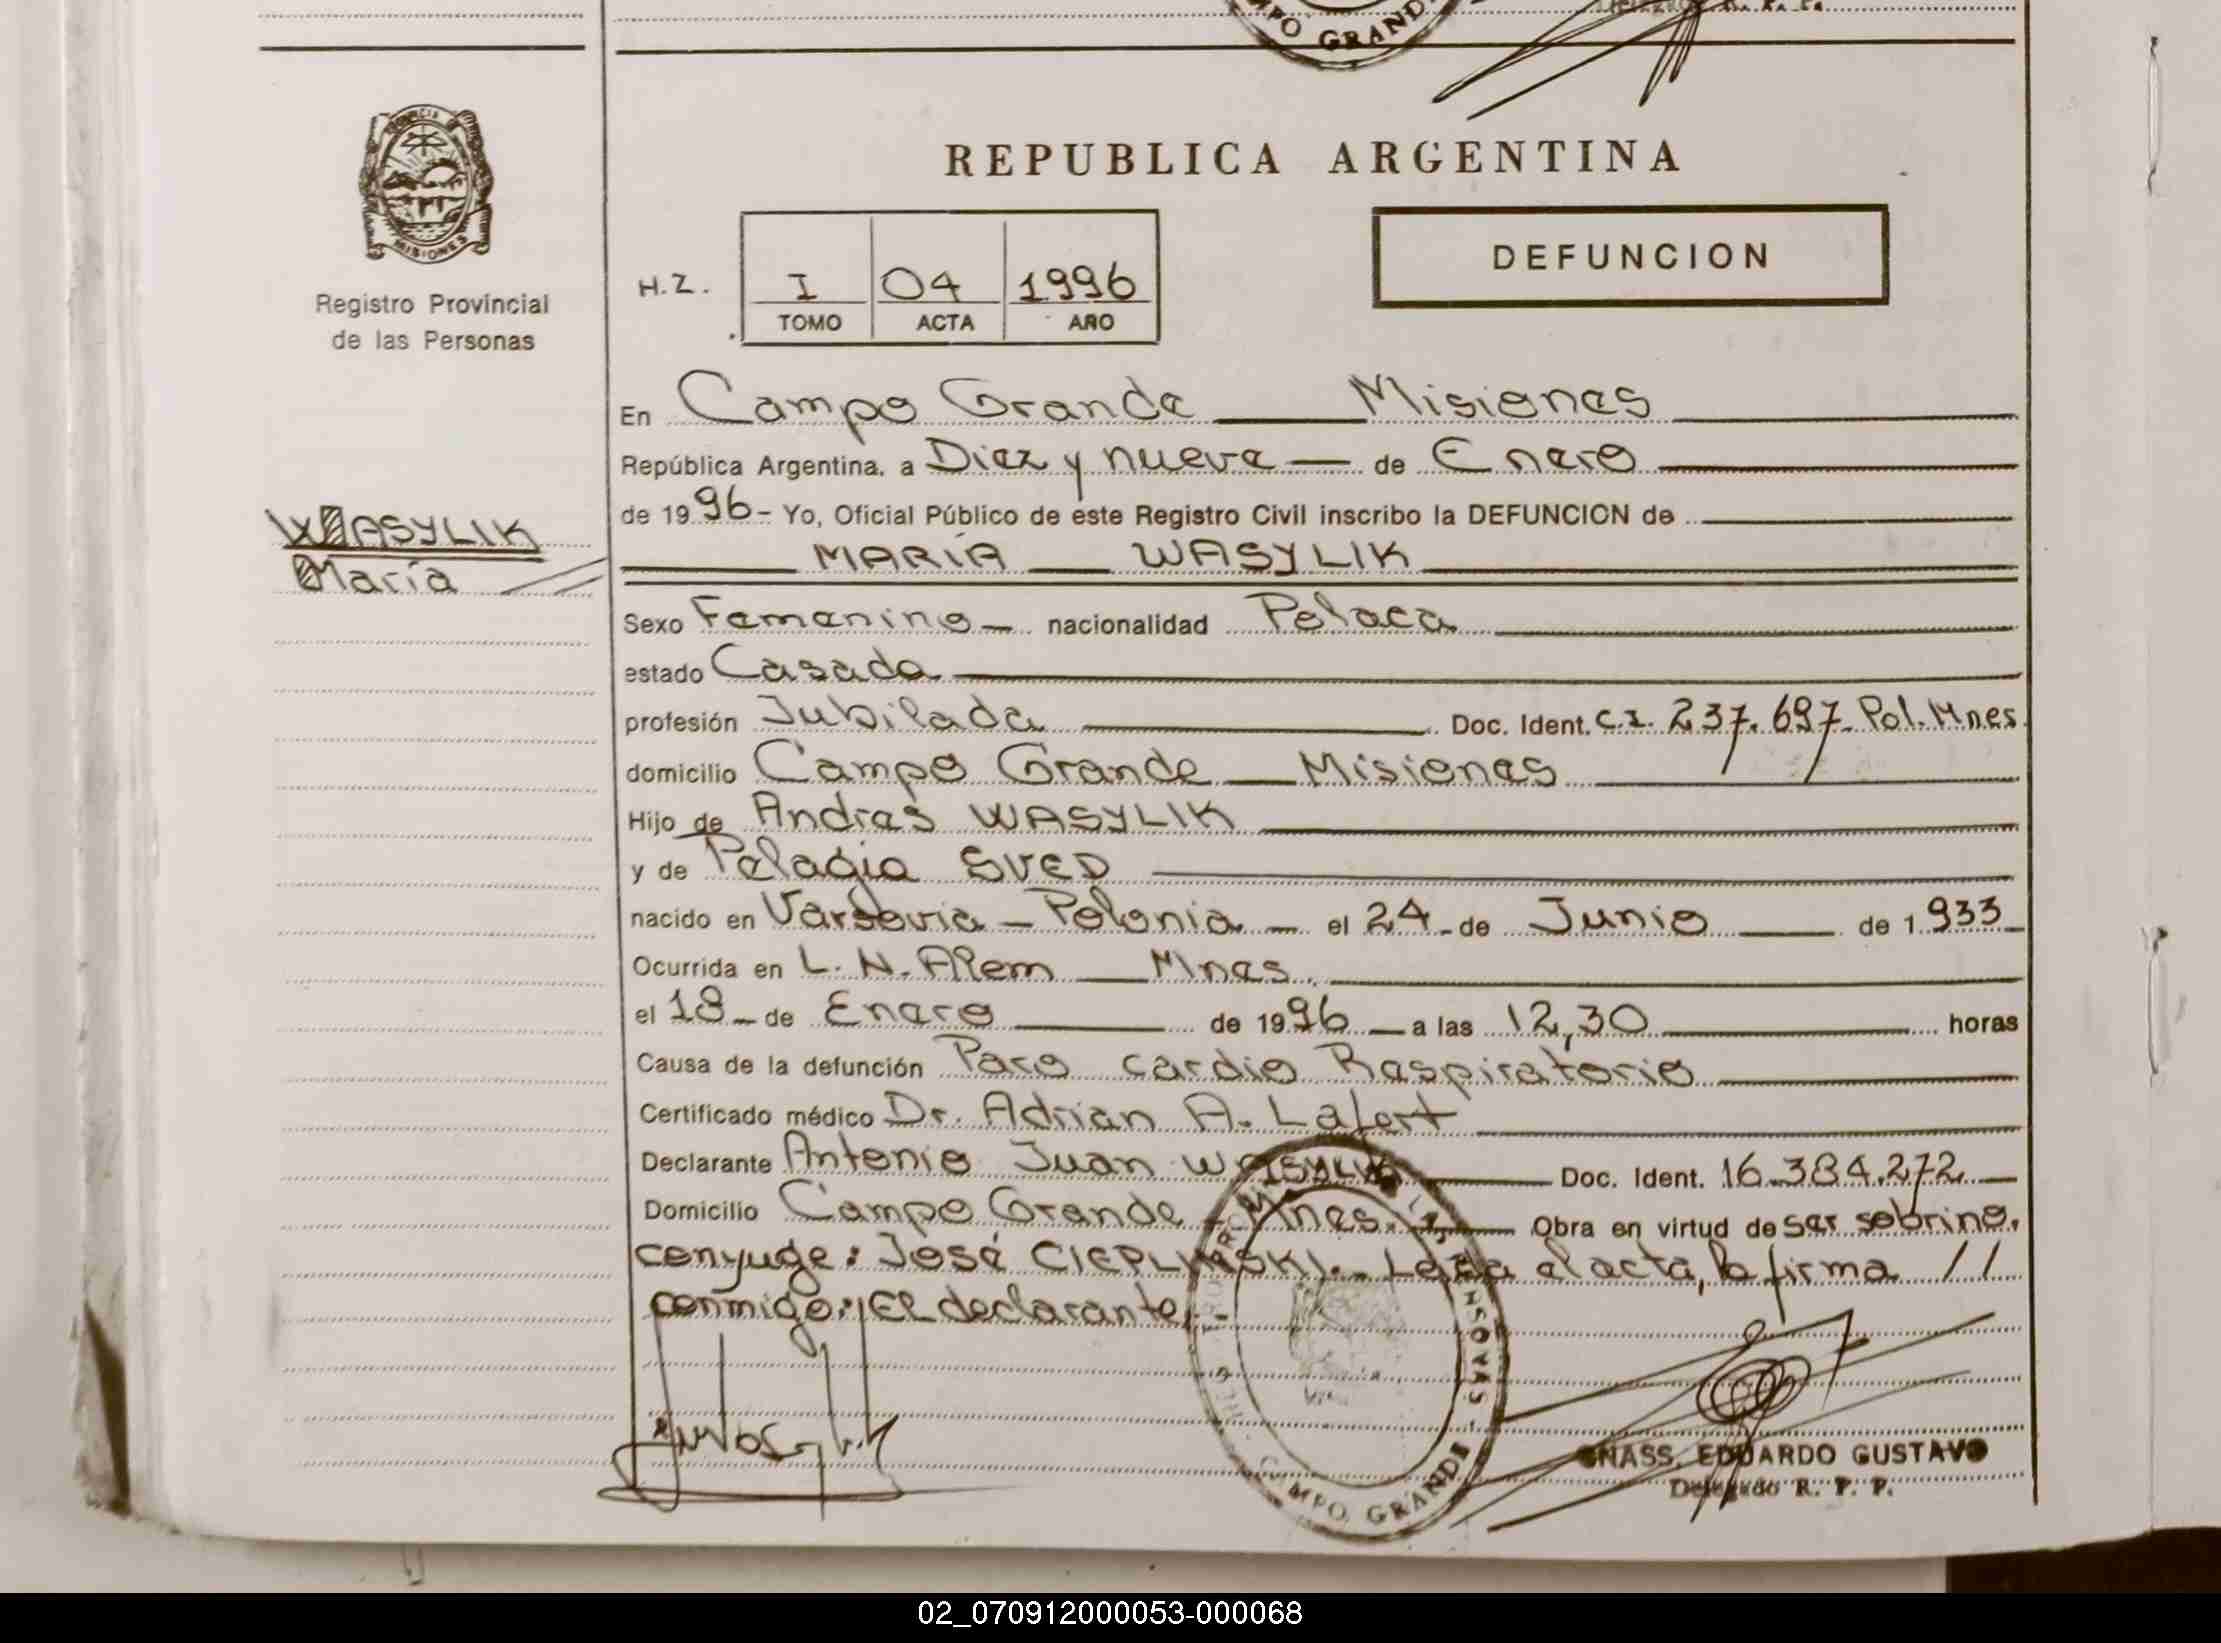 CAMPO GRANDE
REPUBLICA ARGENTINA
PROVINCIA
MISIONES
Registro Provincial
de las Personas
H.Z.
I
04
1996
TOMO
ACTA
AÑO
DEFUNCION
En Campo Grande Misiones
República Argentina, a Diez y nueve de Enero
de 1996- Yo, Oficial Público de este Registro Civil inscribo la DEFUNCION de
WASYLIK
María
MARIA WASYLIK
Sexo Femenino nacionalidad Polaca
estado Casada
profesión Jubilada Doc. Ident. C.I. 237.697- Pol. Mnes
domicilio Campo Grande Misiones
Hijo de Andres WASYLIK
y de Pelagia SVED
nacido en Varsovia - Polonia - el 24 - de Junio de 1933
Ocurrida en L. N. Alem Mnes.
el 18 - de Enero de 1996 a las 12,30 horas
Causa de la defunción Paro cardio Respiratorio
Certificado médico Dr. Adrian A.
Declarante Antonio Juan WASYLIK Doc. Ident. 16.384.272
Domicilio Campo Grande - Mnes. Obra en virtud de ser sobrino.
conyuge: José CIEPLINSKI.- Leída el acta, la firma //
conmigo: El declarante.-
REG. PROVINCIAL DE LAS PERSONAS - CAMPO GRANDE
GNASS, EDUARDO GUSTAVO
Delegado R. P. P.
02_070912000053-000068